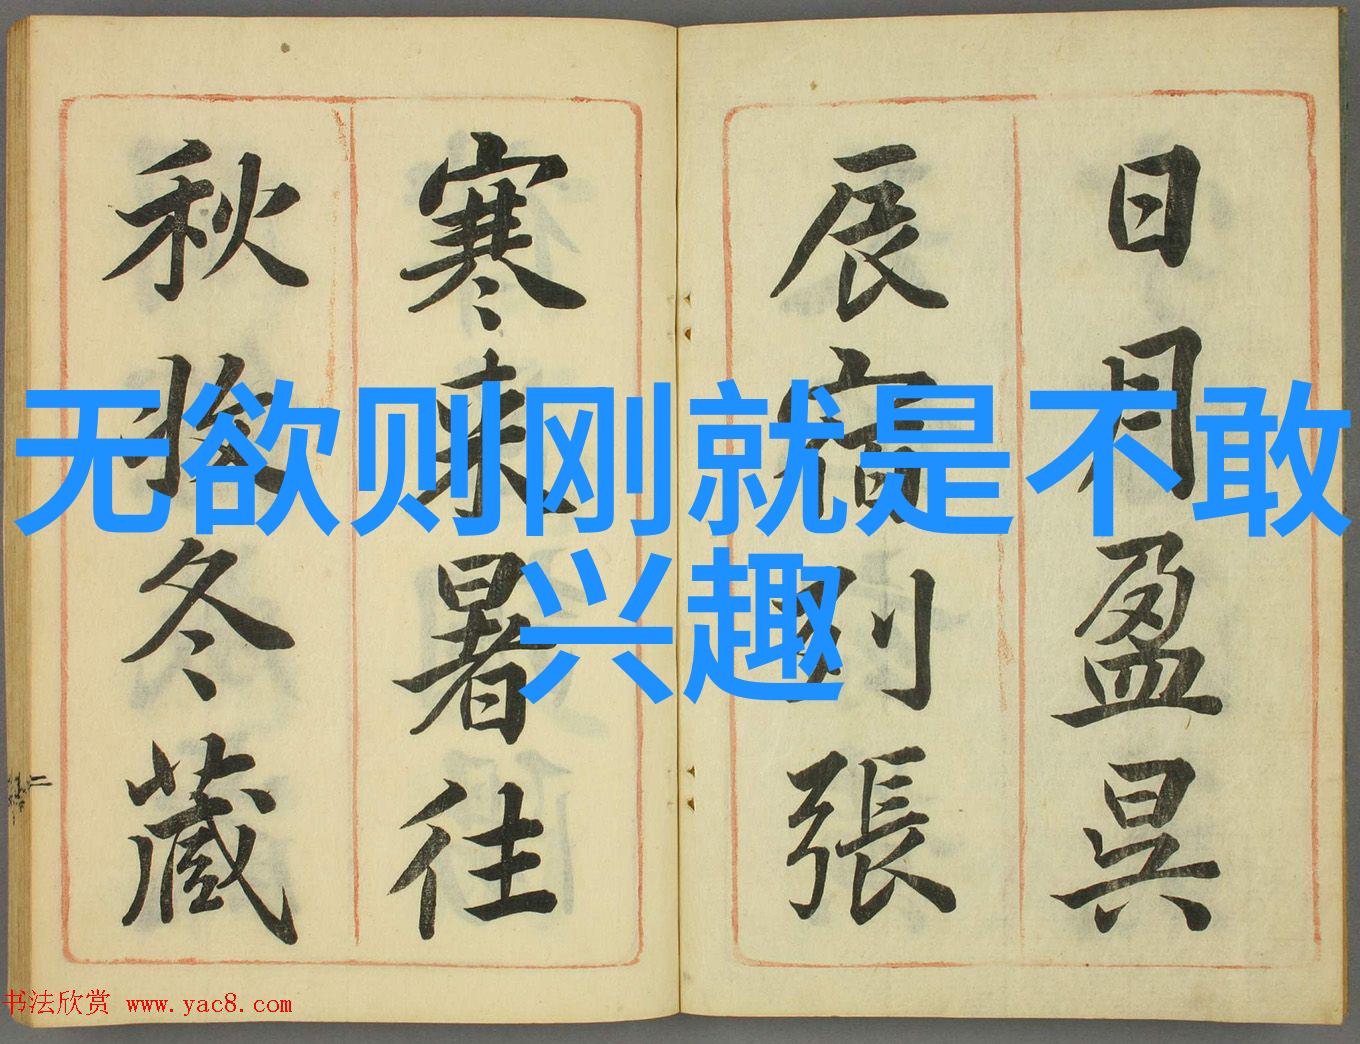 日月盈昃
辰宿列張
寒来暑往
秋收冬藏
无欲则刚就是不敢
兴趣
书法欣赏 www.yac8.com